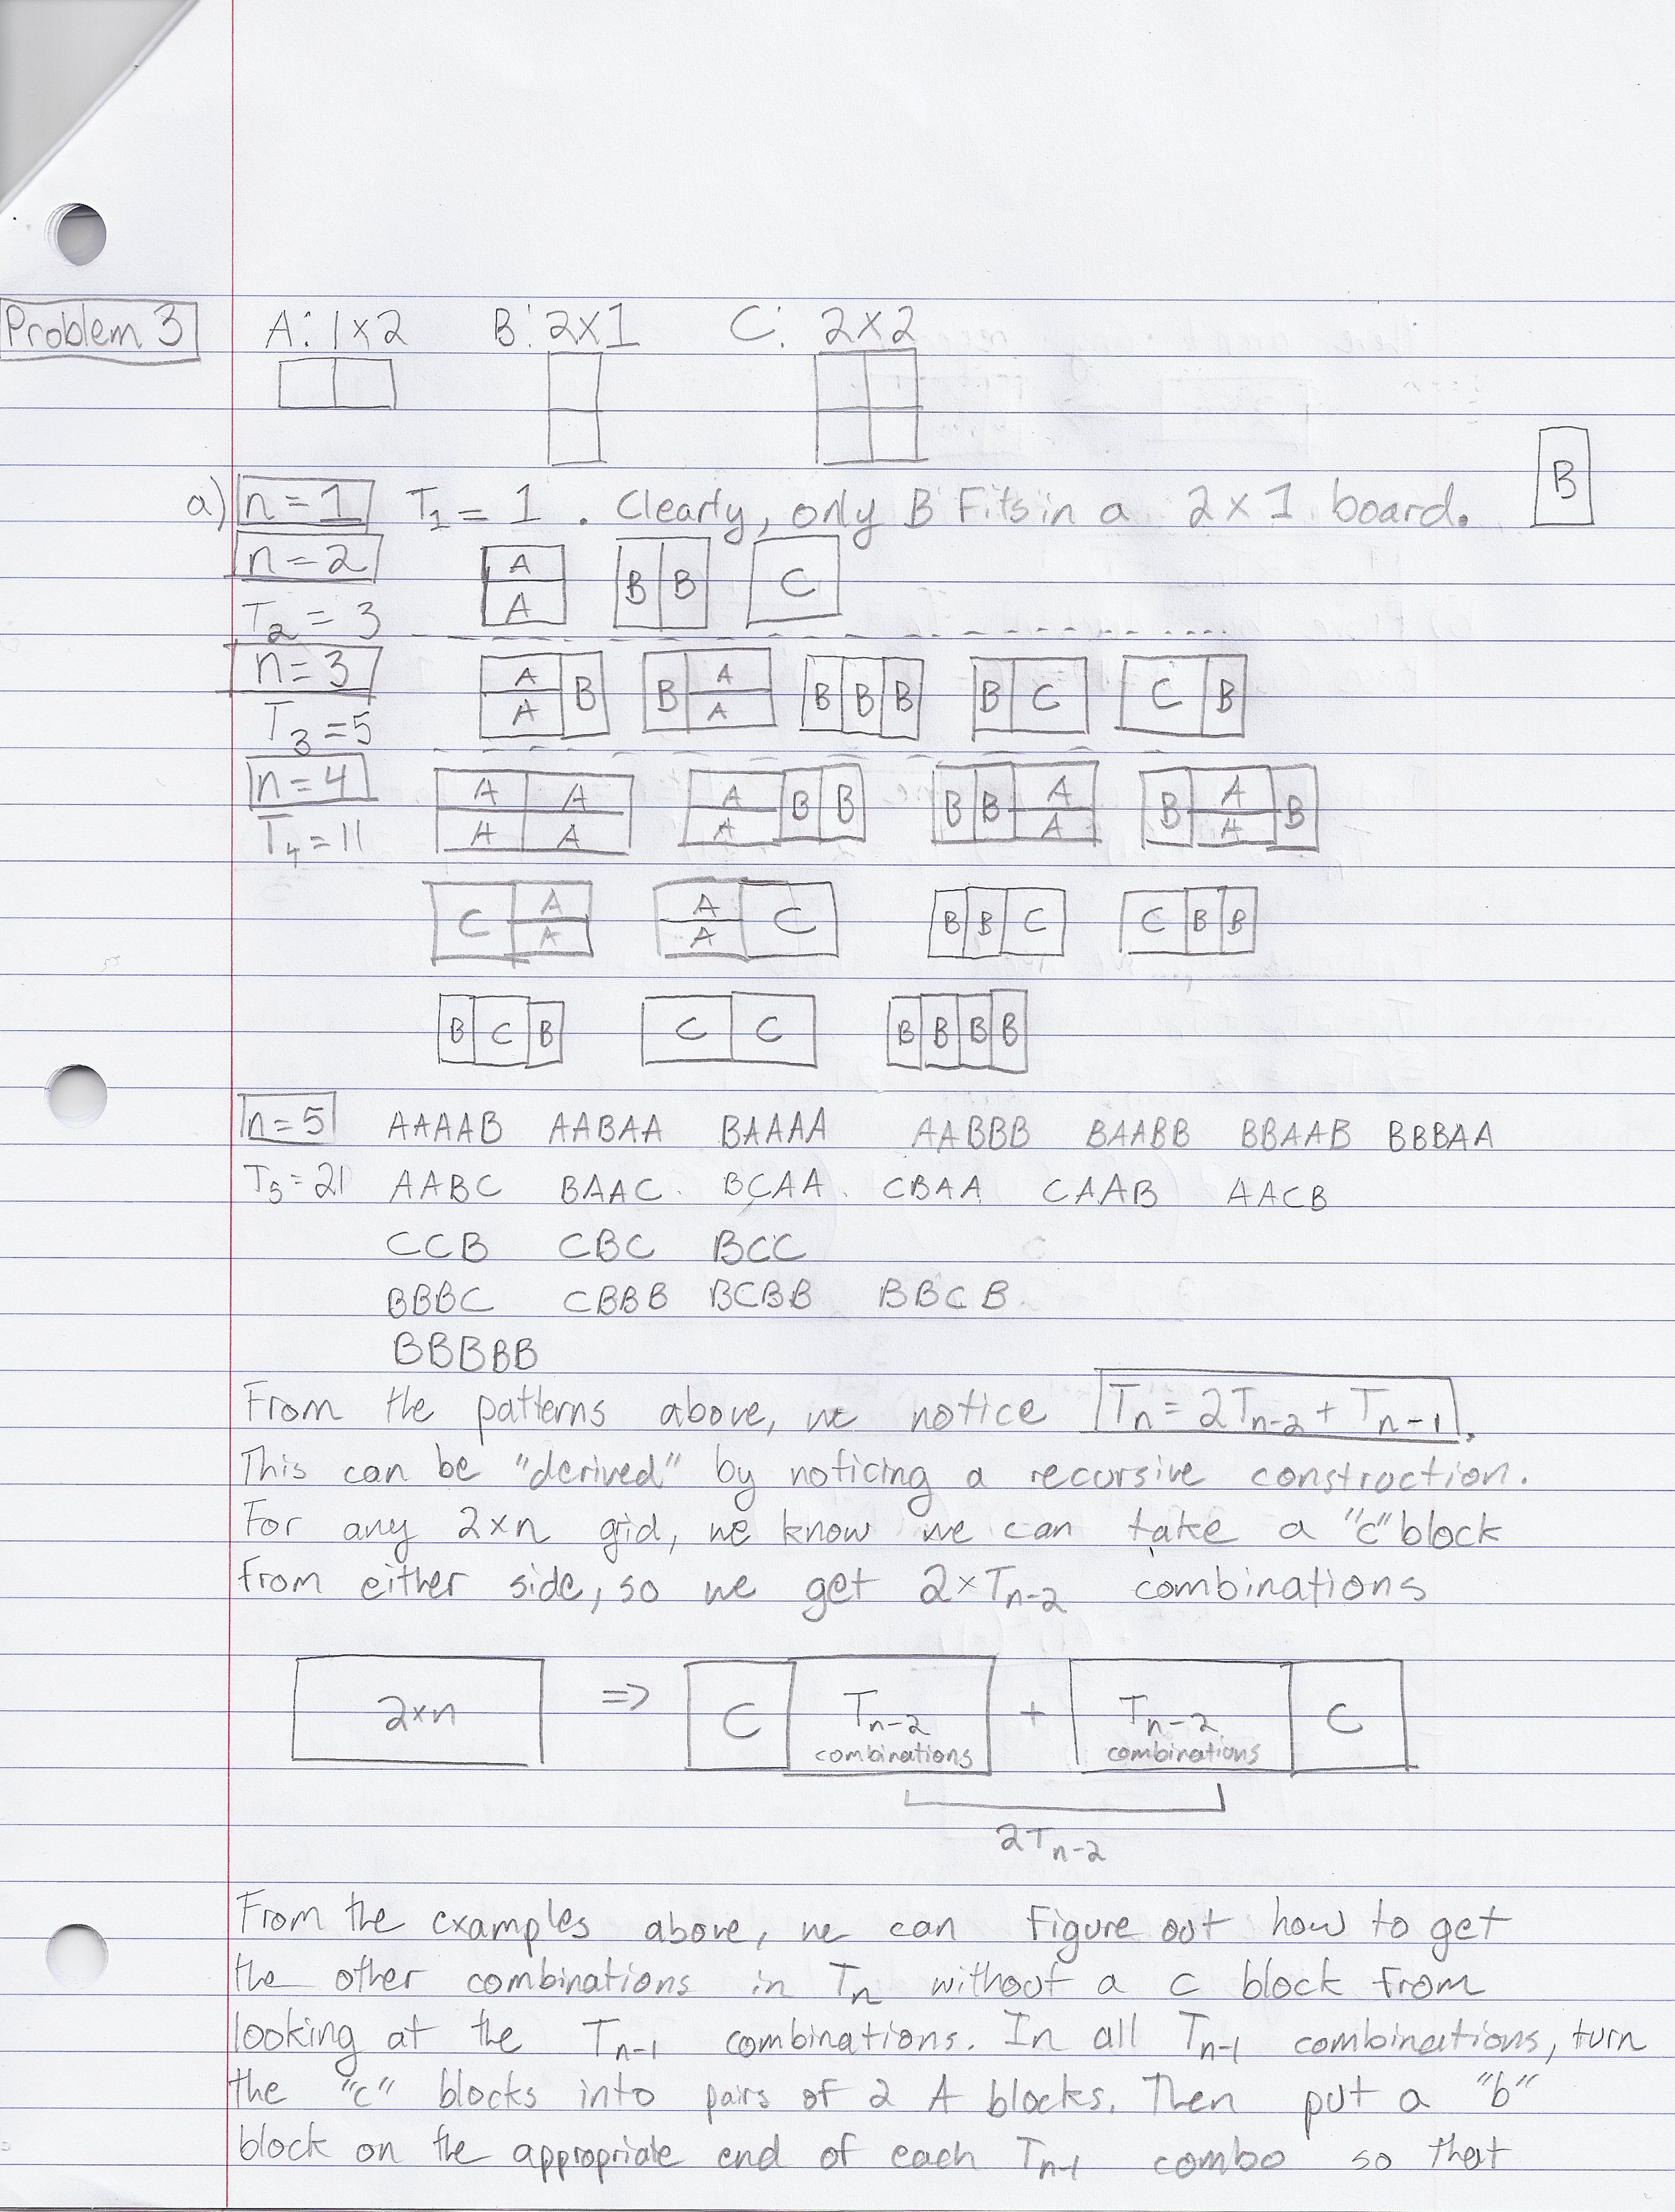 Problem 3 A: 1x2 B: 2x1 C: 2x2
a) n=1 T₁ = 1 . Clearly, only B Fits in a 2x1 board. B
n=2 A A B B C
T₂ = 3
n=3 A A B B A A B B B B C C B
T₃ = 5
n=4 A A A A A A B B B B A A B A A B
T₄ = 11
C A A A A C B B C C B B
B C B C C B B B B
n=5 AAAAB AABAA BAAAA AABBB BAABB BBAAB BBBAA
T₅ = 21 AABC BAAC. BCAA. CBAA CAAB AACB
CCB CBC BCC
BBBC CBBB BCBB BBCB.
BBBBB
From the patterns above, we notice Tn = 2Tn-2 + Tn-1.
This can be "derived" by noticing a recursive construction.
For any 2xn grid, we know we can take a "c" block
from either side, so we get 2xTn-2 combinations
2xn => C Tn-2 combinations + Tn-2 combinations C
2Tn-2
From the examples above, we can Figure out how to get
the other combinations in Tn without a C block from
looking at the Tn-1 combinations. In all Tn-1 combinations, turn
the "c" blocks into pairs of 2 A blocks. Then put a "b"
block on the appropriate end of each Tn-1 combo so that